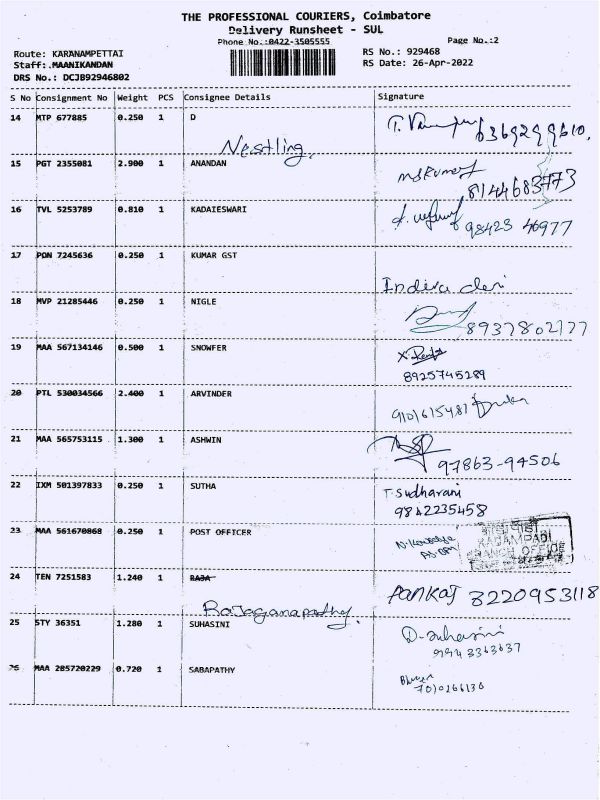 THE PROFESSIONAL COURIERS, Coimbatore
Delivery Runsheet - SUL
Phone No.:0422-3505555
Page No.:2
Route: KARANAMPETTAI
RS No.: 929468
Staff:.MAANIKANDAN
RS Date: 26-Apr-2022
DRS No.: DCJB92946802
S No Consignment No Weight PCS Consignee Details Signature
14 MTP 677885 0.250 1 D
Nestling
15 PGT 2355081 2.900 1 ANANDAN
8144683773
16 TVL 5253789 0.810 1 KADAIESWARI
98423 46977
17 PON 7245636 0.250 1 KUMAR GST
Indira devi
18 MVP 21285446 0.250 1 NIGLE
19 MAA 567134146 0.500 1 SNOWFER
8925745289
20 PTL 530034566 2.400 1 ARVINDER
21 MAA 565753115 1.300 1 ASHWIN
97863-94506
22 IXM 501397833 0.250 1 SUTHA T. Sudharani
9842235458
23 MAA 561670868 0.250 1 POST OFFICER
BRANCH OFFICE
24 TEN 7251583 1.240 1 RAJA Pankaj 8220953118
Rajaganapathy.
25 STY 36351 1.280 1 SUHASINI D. Suhasini
9943363637
26 MAA 285720229 0.720 1 SABAPATHY